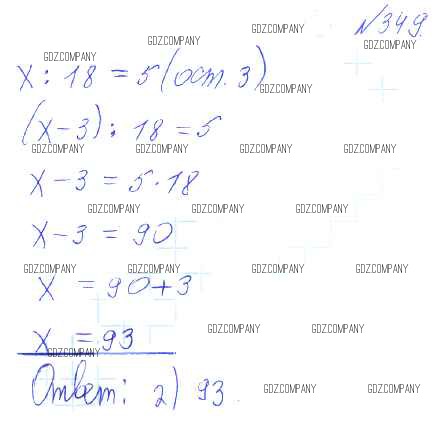 №349.
GDZ.COMPANY
GDZ.COMPANY
GDZ.COMPANY
x : 18 = 5 (ост. 3)
GDZ.COMPANY
(x-3) : 18 = 5
GDZ.COMPANY GDZ.COMPANY GDZ.COMPANY GDZ.COMPANY
x-3 = 5·18
GDZ.COMPANY GDZ.COMPANY GDZ.COMPANY
x-3 = 90
GDZ.COMPANY GDZ.COMPANY GDZ.COMPANY GDZ.COMPANY
x = 90+3
GDZ.COMPANY GDZ.COMPANY
x = 93
GDZ.COMPANY
Ответ: 2) 93
GDZ.COMPANY GDZ.COMPANY